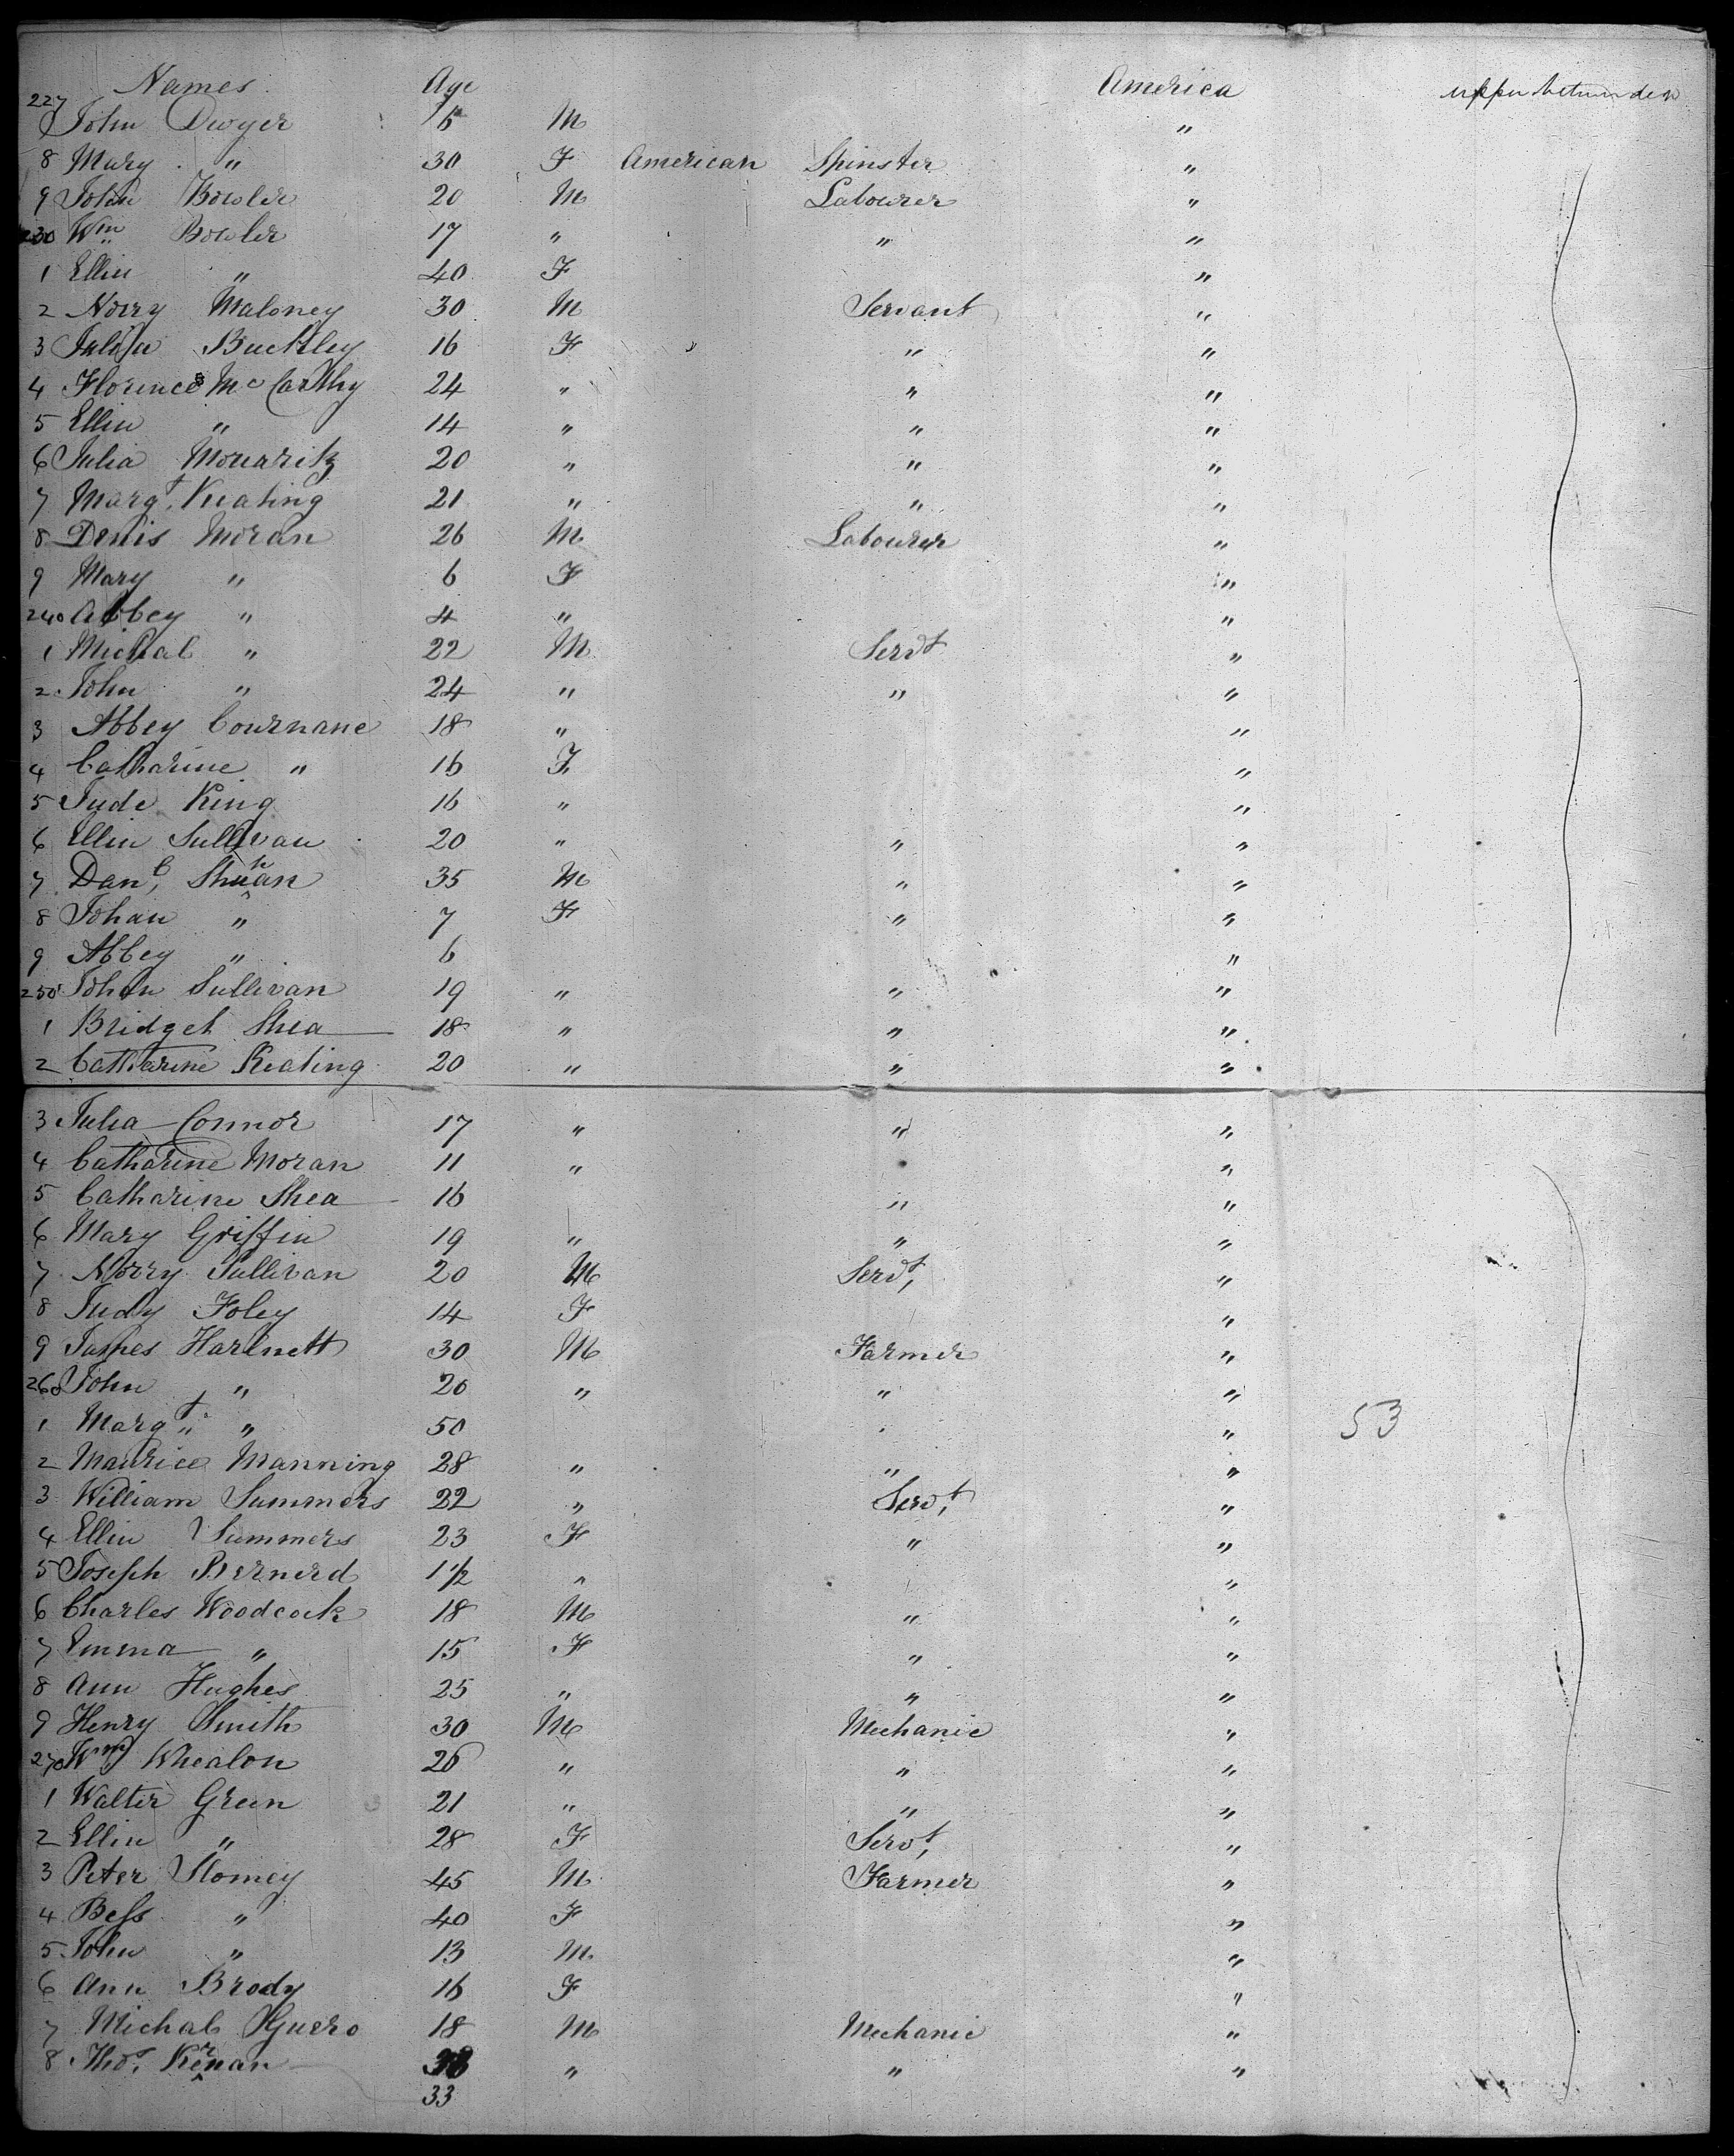 Names Age America upper between decks
227 John Dwyer 6 M "
8 Mary " 30 F American Spinster "
9 John Bowler 20 M Labourer "
230 Wm Bowler 17 " " "
1 Ellin " 40 F "
2 Norry Maloney 30 M Servant "
3 Julia Buckley 16 F " "
4 Florence McCarthy 24 " " "
5 Ellin " 14 " " "
6 Julia Moriaritz 20 " " "
7 Margt Keating 21 " " "
8 Denis Moran 26 M Labourer "
9 Mary " 6 F "
240 Abbey " 4 " "
1 Michal " 22 M Servt "
2 John " 24 " " "
3 Abbey Cournane 18 " "
4 Catharine " 16 F "
5 Jude King 16 " "
6 Ellin Sullivan 20 " " "
7 Danl, Shehan 35 M " "
8 Johan " 7 F " "
9 Abbey " 6 "
250 Johan Sullivan 19 " " "
1 Bridget Shea 18 " " "
2 Catharine Keating 20 " " "
3 Julia Connor 17 " " "
4 Catharine Moran 11 " "
5 Catharine Shea 16 " "
6 Mary Griffin 19 " " "
7 Norry Sullivan 20 M Servt, "
8 Judy Foley 14 F "
9 James Hartnett 30 M Farmer "
260 John " 20 " " "
1 Margt " 50 " 53
2 Maurice Manning 28 " " "
3 William Summers 22 " Servt, "
4 Ellin Summers 23 F " "
5 Joseph Bernerd 1 1/2 " "
6 Charles Woodcock 18 M " "
7 Emma " 15 F " "
8 Ann Hughes 25 " " "
9 Henry Smith 30 M Mechanic "
270 Wm Whealon 26 " " "
1 Walter Green 21 " " "
2 Ellin " 28 F Servt, "
3 Peter Slomey 45 M Farmer "
4 Bess " 40 F "
5 John " 13 M "
6 Ann Brody 16 F "
7 Michal 18 M Mechanic "
8 Thos, " " "
33